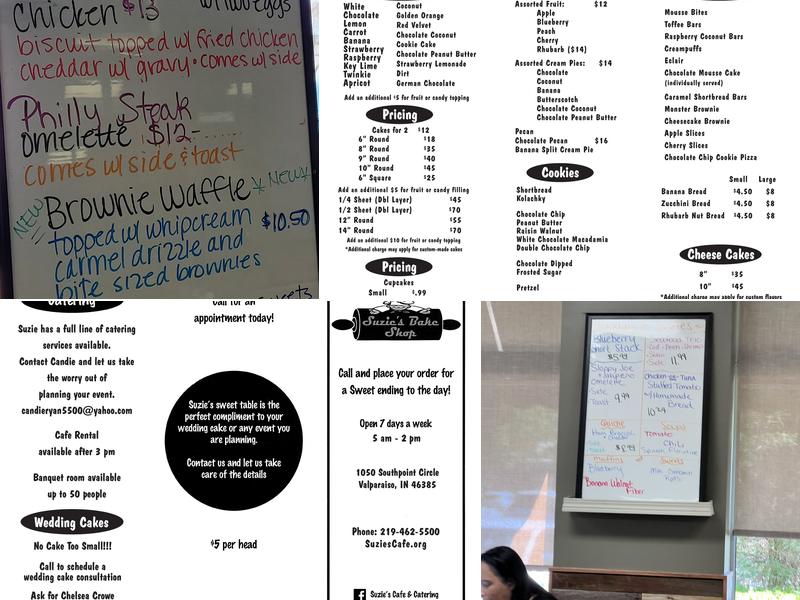 Chicken $13
biscuit topped w/ fried chicken
cheddar w/ gravy • comes w/ side
Philly Steak
omelette $12-
comes w/ side & toast
NEW Brownie Waffle NEW
topped w/ whipcream $10.50
carmel drizzle and
bite sized brownies
White
Chocolate
Lemon
Carrot
Banana
Strawberry
Raspberry
Key Lime
Twinkie
Apricot
Coconut
Golden Orange
Red Velvet
Chocolate Coconut
Cookie Cake
Chocolate Peanut Butter
Strawberry Lemonade
Dirt
German Chocolate
Add an additional $5 for fruit or candy topping
Pricing
Cakes for 2 $12
6" Round $18
8" Round $35
9" Round $40
10" Round $45
6" Square $25
Add an additional $5 for fruit or candy filling
1/4 Sheet (Dbl Layer) $45
1/2 Sheet (Dbl Layer) $70
12" Round $55
14" Round $70
Add an additional $10 for fruit or candy topping
*Additional charge may apply for custom-made cakes
Pricing
Cupcakes
Small $.99
Assorted Fruit: $12
Apple
Blueberry
Peach
Cherry
Rhubarb ($14)
Assorted Cream Pies: $14
Chocolate
Coconut
Banana
Butterscotch
Chocolate Coconut
Chocolate Peanut Butter
Pecan
Chocolate Pecan $16
Banana Split Cream Pie
Cookies
Shortbread
Kolachky
Chocolate Chip
Peanut Butter
Raisin Walnut
White Chocolate Macadamia
Double Chocolate Chip
Chocolate Dipped
Frosted Sugar
Pretzel
Mousse Bites
Toffee Bars
Raspberry Coconut Bars
Creampuffs
Eclair
Chocolate Mousse Cake
(individually served)
Caramel Shortbread Bars
Monster Brownie
Cheesecake Brownie
Apple Slices
Cherry Slices
Chocolate Chip Cookie Pizza
Small Large
Banana Bread $4.50 $8
Zucchini Bread $4.50 $8
Rhubarb Nut Bread $4.50 $8
Cheese Cakes
8" $35
10" $45
*Additional charge may apply for custom flavors
Catering
Suzie has a full line of catering
services available.
Contact Candie and let us take
the worry out of
planning your event.
candieryan5500@yahoo.com
Cafe Rental
available after 3 pm
Banquet room available
up to 50 people
Wedding Cakes
No Cake Too Small!!!
Call to schedule a
wedding cake consultation
Ask for Chelsea Crowe
Call for an
appointment today!
Suzie's sweet table is the
perfect compliment to your
wedding cake or any event you
are planning.
Contact us and let us take
care of the details
$5 per head
Suzie's Bake
Shop
Call and place your order for
a Sweet ending to the day!
Open 7 days a week
5 am - 2 pm
1050 Southpoint Circle
Valparaiso, IN 46385
Phone: 219-462-5500
SuziesCafe.org
Suzie's Cafe & Catering
Blueberry
Short Stack
Sloppy Joe
Jalapeno
Omelette
Side
Toast 9.99
11.99
Chicken or Tuna
Stuffed Tomato
w/ Homemade
Bread
Quiche
Ham Broccoli
Muffins
Blueberry
Banana Walnut
Fiber
Soups
Tomato
Chili
Sweets
Rolls